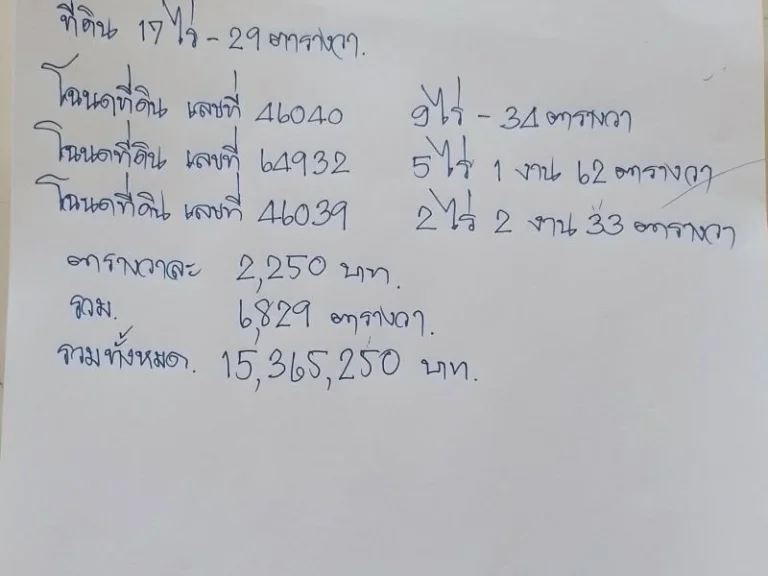 ที่ดิน 17 ไร่ - 29 ตารางวา.
โฉนดที่ดิน เลขที่ 46040 9 ไร่ - 34 ตารางวา
โฉนดที่ดิน เลขที่ 64932 5 ไร่ 1 งาน 62 ตารางวา
โฉนดที่ดิน เลขที่ 46039 2 ไร่ 2 งาน 33 ตารางวา
ตารางวาละ 2,250 บาท.
รวม. 6,829 ตารางวา.
รวมทั้งหมด. 15,365,250 บาท.